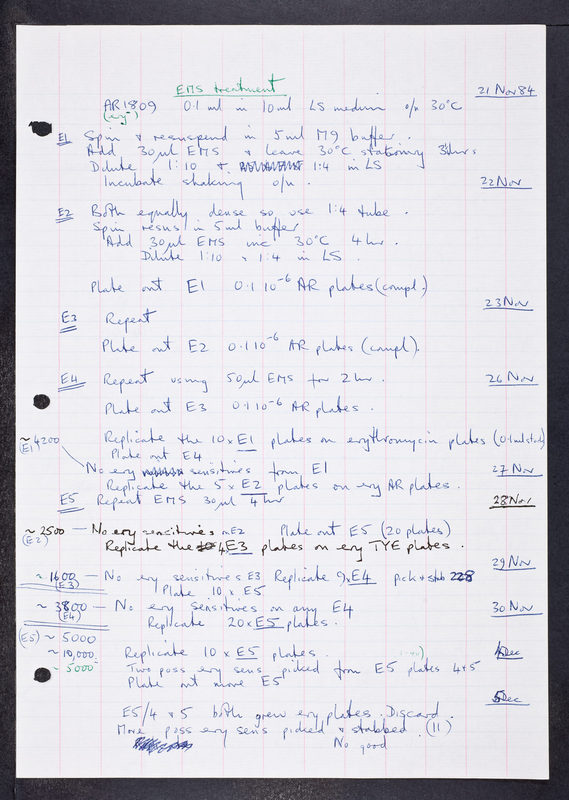 EMS treatment 21 Nov 84
AR1809 0.1 ml in 10 ml LS medium o/n 30°C
(ery^r)
E1 Spin & resuspend in 5 ml M9 buffer.
Add 30 µl EMS & leave 30°C stationary 3 hrs
Dilute 1:10 & 1:4 in LS
Incubate shaking o/n. 22 Nov
E2 Both equally dense so use 1:4 tube.
Spin resus in 5 ml buffer
Add 30 µl EMS inc 30°C 4 hr.
Dilute 1:10 & 1:4 in LS.
Plate out E1 0.1 10^-6 AR plates (compl.)
23 Nov
E3 Repeat
Plate out E2 0.1 10^-6 AR plates (compl).
E4 Repeat using 50 µl EMS for 2 hr. 26 Nov
Plate out E3 0.1 10^-6 AR plates.
~4200 Replicate the 10 x E1 plates on erythromycin plates (0.1 ml stock)
(E1) Plate out E4
No ery sensitives from E1 27 Nov
Replicate the 5 x E2 plates on ery AR plates.
E5 Repeat EMS 30 µl 4 hr 28 Nov
~2500 — No ery sensitives E2 Plate out E5 (20 plates)
(E2) Replicate the 4 E3 plates on ery TYE plates.
29 Nov
~1600 — No ery sensitives E3 Replicate 9 x E4 pick & stab 228
(E3) Plate 10 x E5
~3800 — No ery sensitives on any E4 30 Nov
(E4) Replicate 20 x E5 plates.
(E5) ~5000
~10,000 Replicate 10 x E5 plates. 4 Dec
~5000 Two poss ery sens picked from E5 plates 4 & 5
Plate out more E5
5 Dec
E5/4 & 5 both grew ery plates. Discard.
More poss ery sens picked & stabbed. (11)
No good